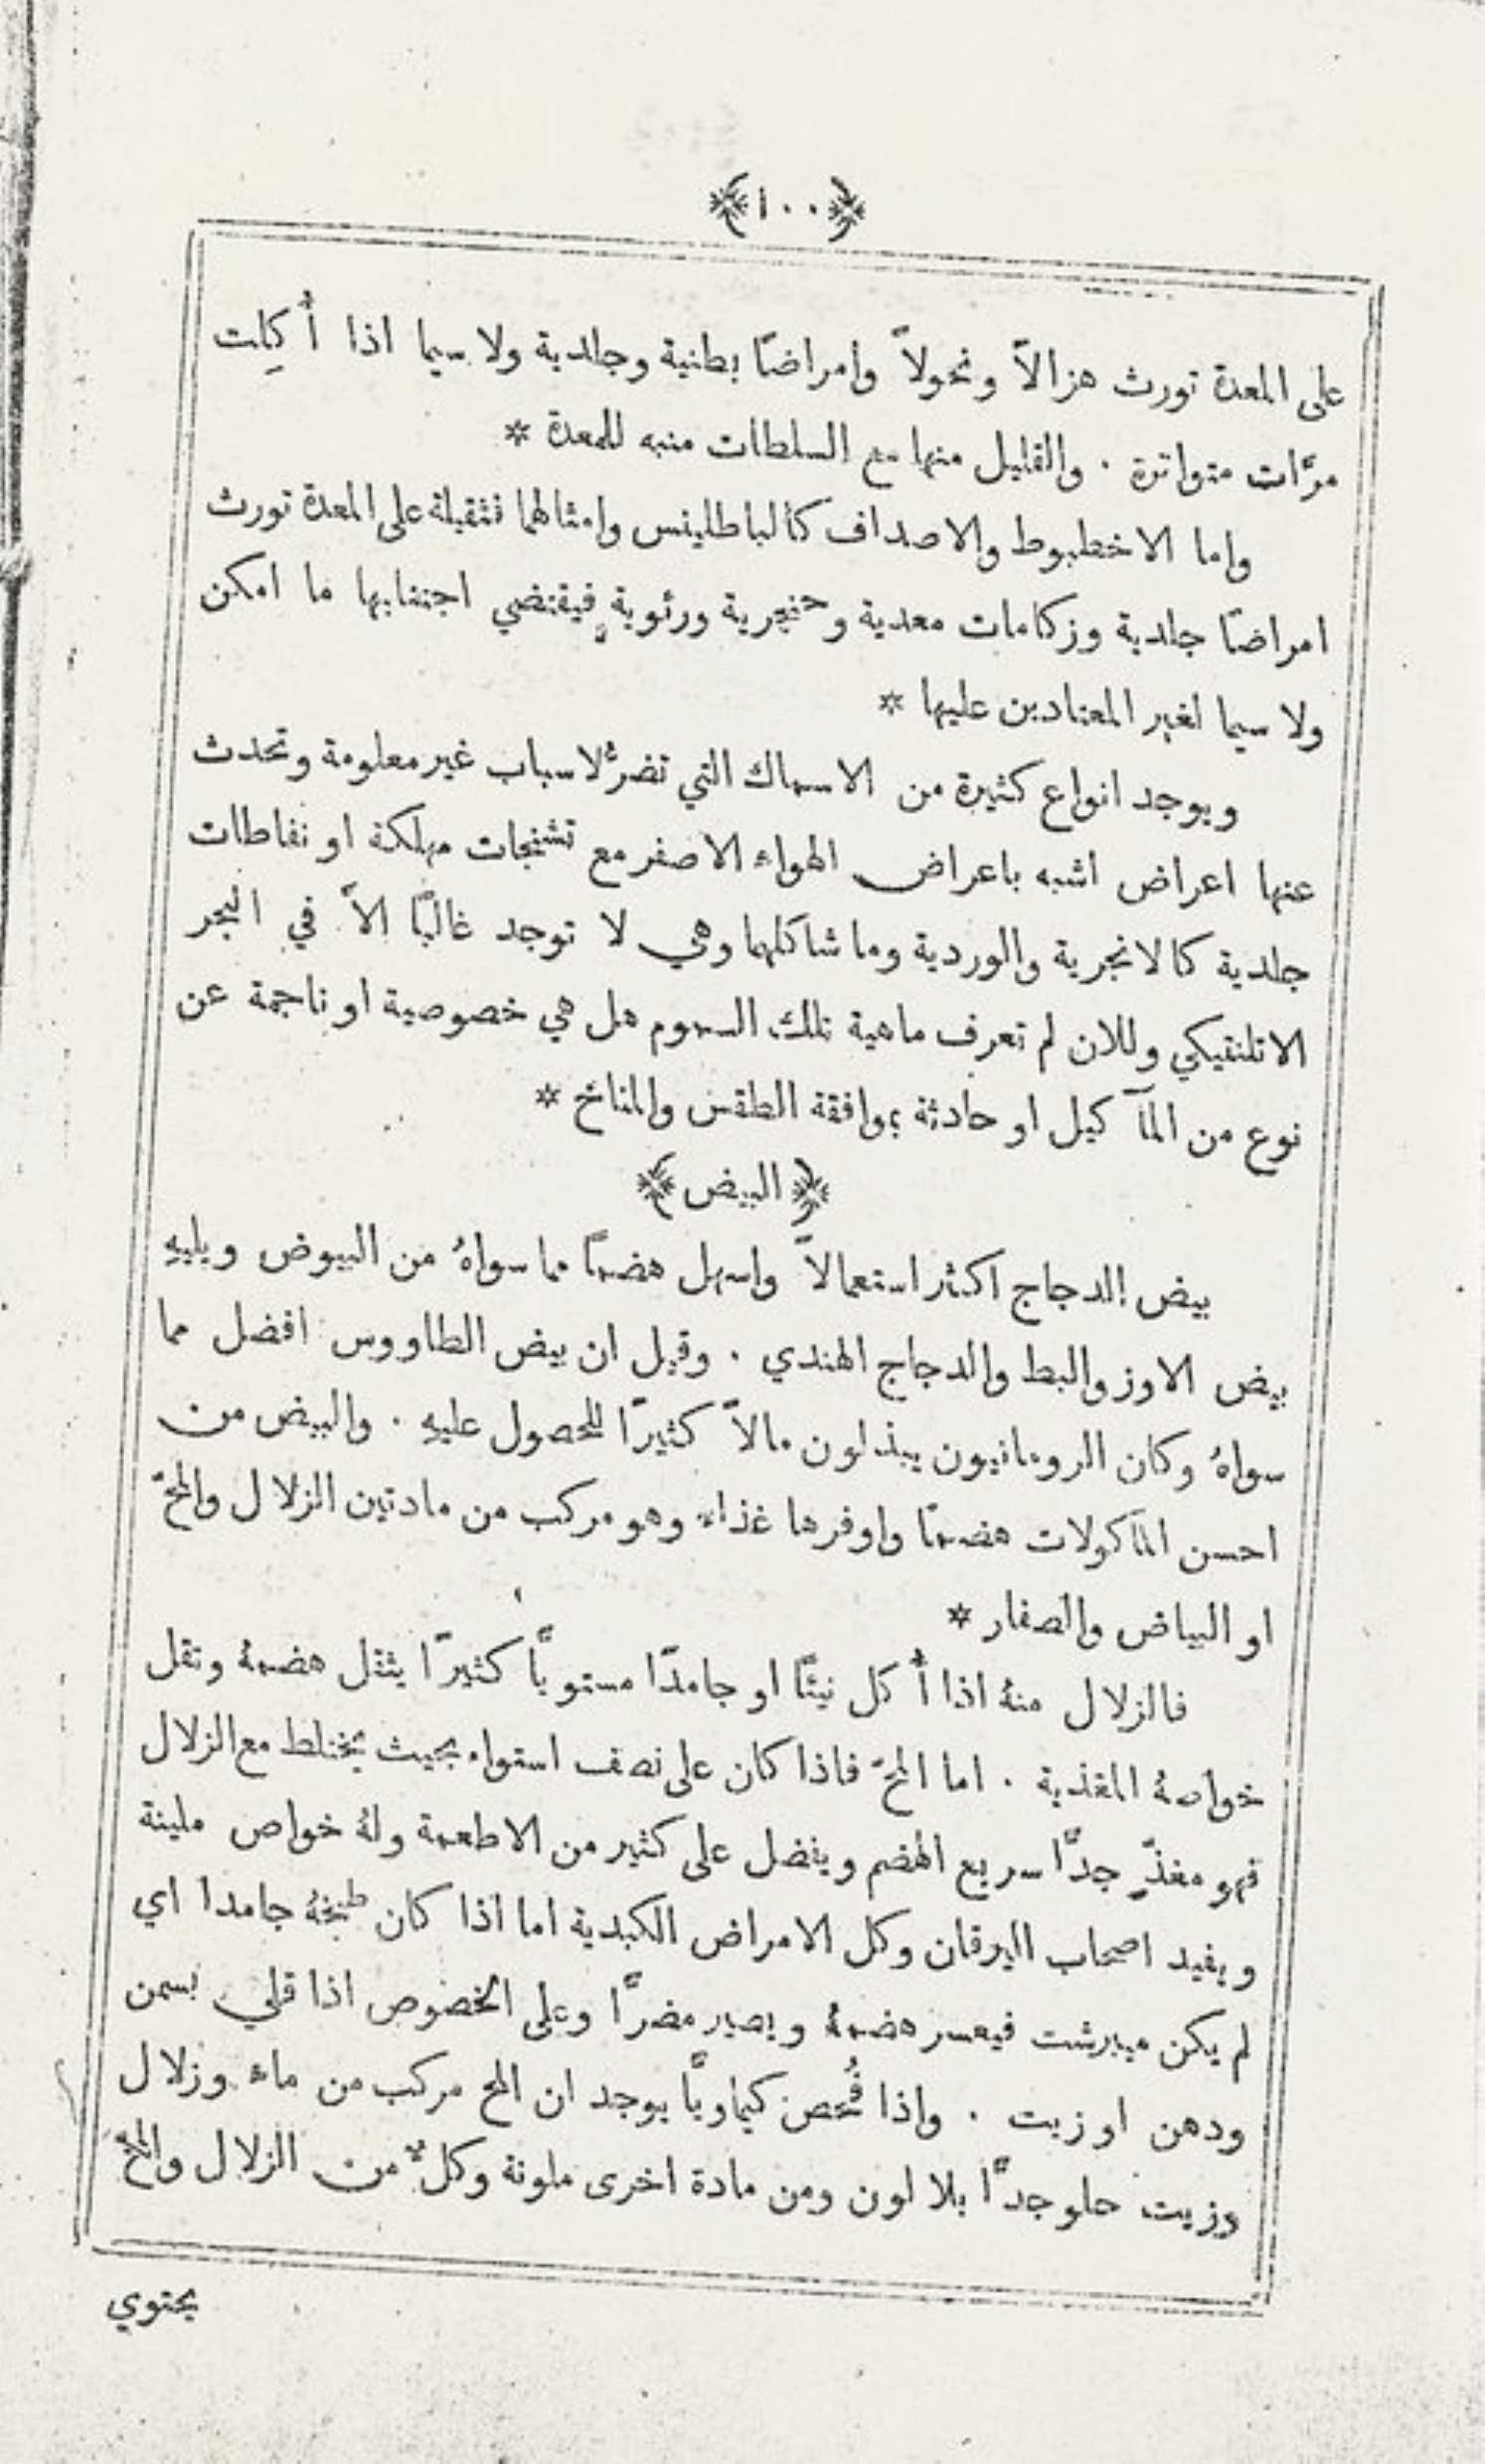 ﴿١٠٠﴾
على المعدة تورث هزالاً ونحولاً وامراضًا بطنية وجلدية ولا سيما اذا أُكِلت
مرَّات متواترة . والقليل منها مع السلطات منبه للمعدة *
واما الاخطبوط والاصداف كالباطلينس وامثالهما فثقيلة على المعدة تورث
امراضًا جلدية وزكامات معدية وحنجرية ورئوية فيقتضي اجتنابها ما امكن
ولا سيما لغير المعتادين عليها *
ويوجد انواع كثيرة من الاسماك التي تضرُّ لاسباب غير معلومة وتحدث
عنها اعراض اشبه باعراض الهواء الاصفر مع تشنجات مهلكة او نفاطات
جلدية كالانجرية والوردية وما شاكلهما وهي لا توجد غالبًا الاَّ في البحر
الاتلنتيكي وللان لم تعرف ماهية تلك السموم هل هي خصوصية او ناجمة عن
نوع من المآكيل او حادثة بموافقة الطقس والمناخ *
﴿البيض﴾
بيض الدجاج اكثر استعمالاً واسهل هضمًا مما سواهُ من البيوض ويليهِ
بيض الاوز والبط والدجاج الهندي . وقيل ان بيض الطاووس افضل مما
سواهُ وكان الرومانيون يبذلون مالاً كثيرًا للحصول عليهِ . والبيض من
احسن المآكولات هضمًا واوفرها غذاء وهو مركب من مادتين الزلال والمحّ
او البياض والصفار *
فالزلال منهُ اذا أُكل نيئًا او جامدًا مستويًّا كثيرًا يثقل هضمهُ وتقل
خواصهُ المغذية . اما المحّ فاذا كان على نصف استواء بحيث يختلط مع الزلال
فهو مغذٍّ جدًّا سريع الهضم ويفضل على كثير من الاطعمة ولهُ خواص ملينة
ويفيد اصحاب اليرقان وكل الامراض الكبدية اما اذا كان طبخهُ جامدا اي
لم يكن ميبرشت فيعسر هضمهُ ويصير مضرًّا وعلى الخصوص اذا قلي بسمن
ودهن او زيت . واذا فُحص كيماويًّا يوجد ان المح مركب من ماء وزلال
وزيت حلو جدًّا بلا لون ومن مادة اخرى ملونة وكلٌّ من الزلال والمحّ
يحتوي